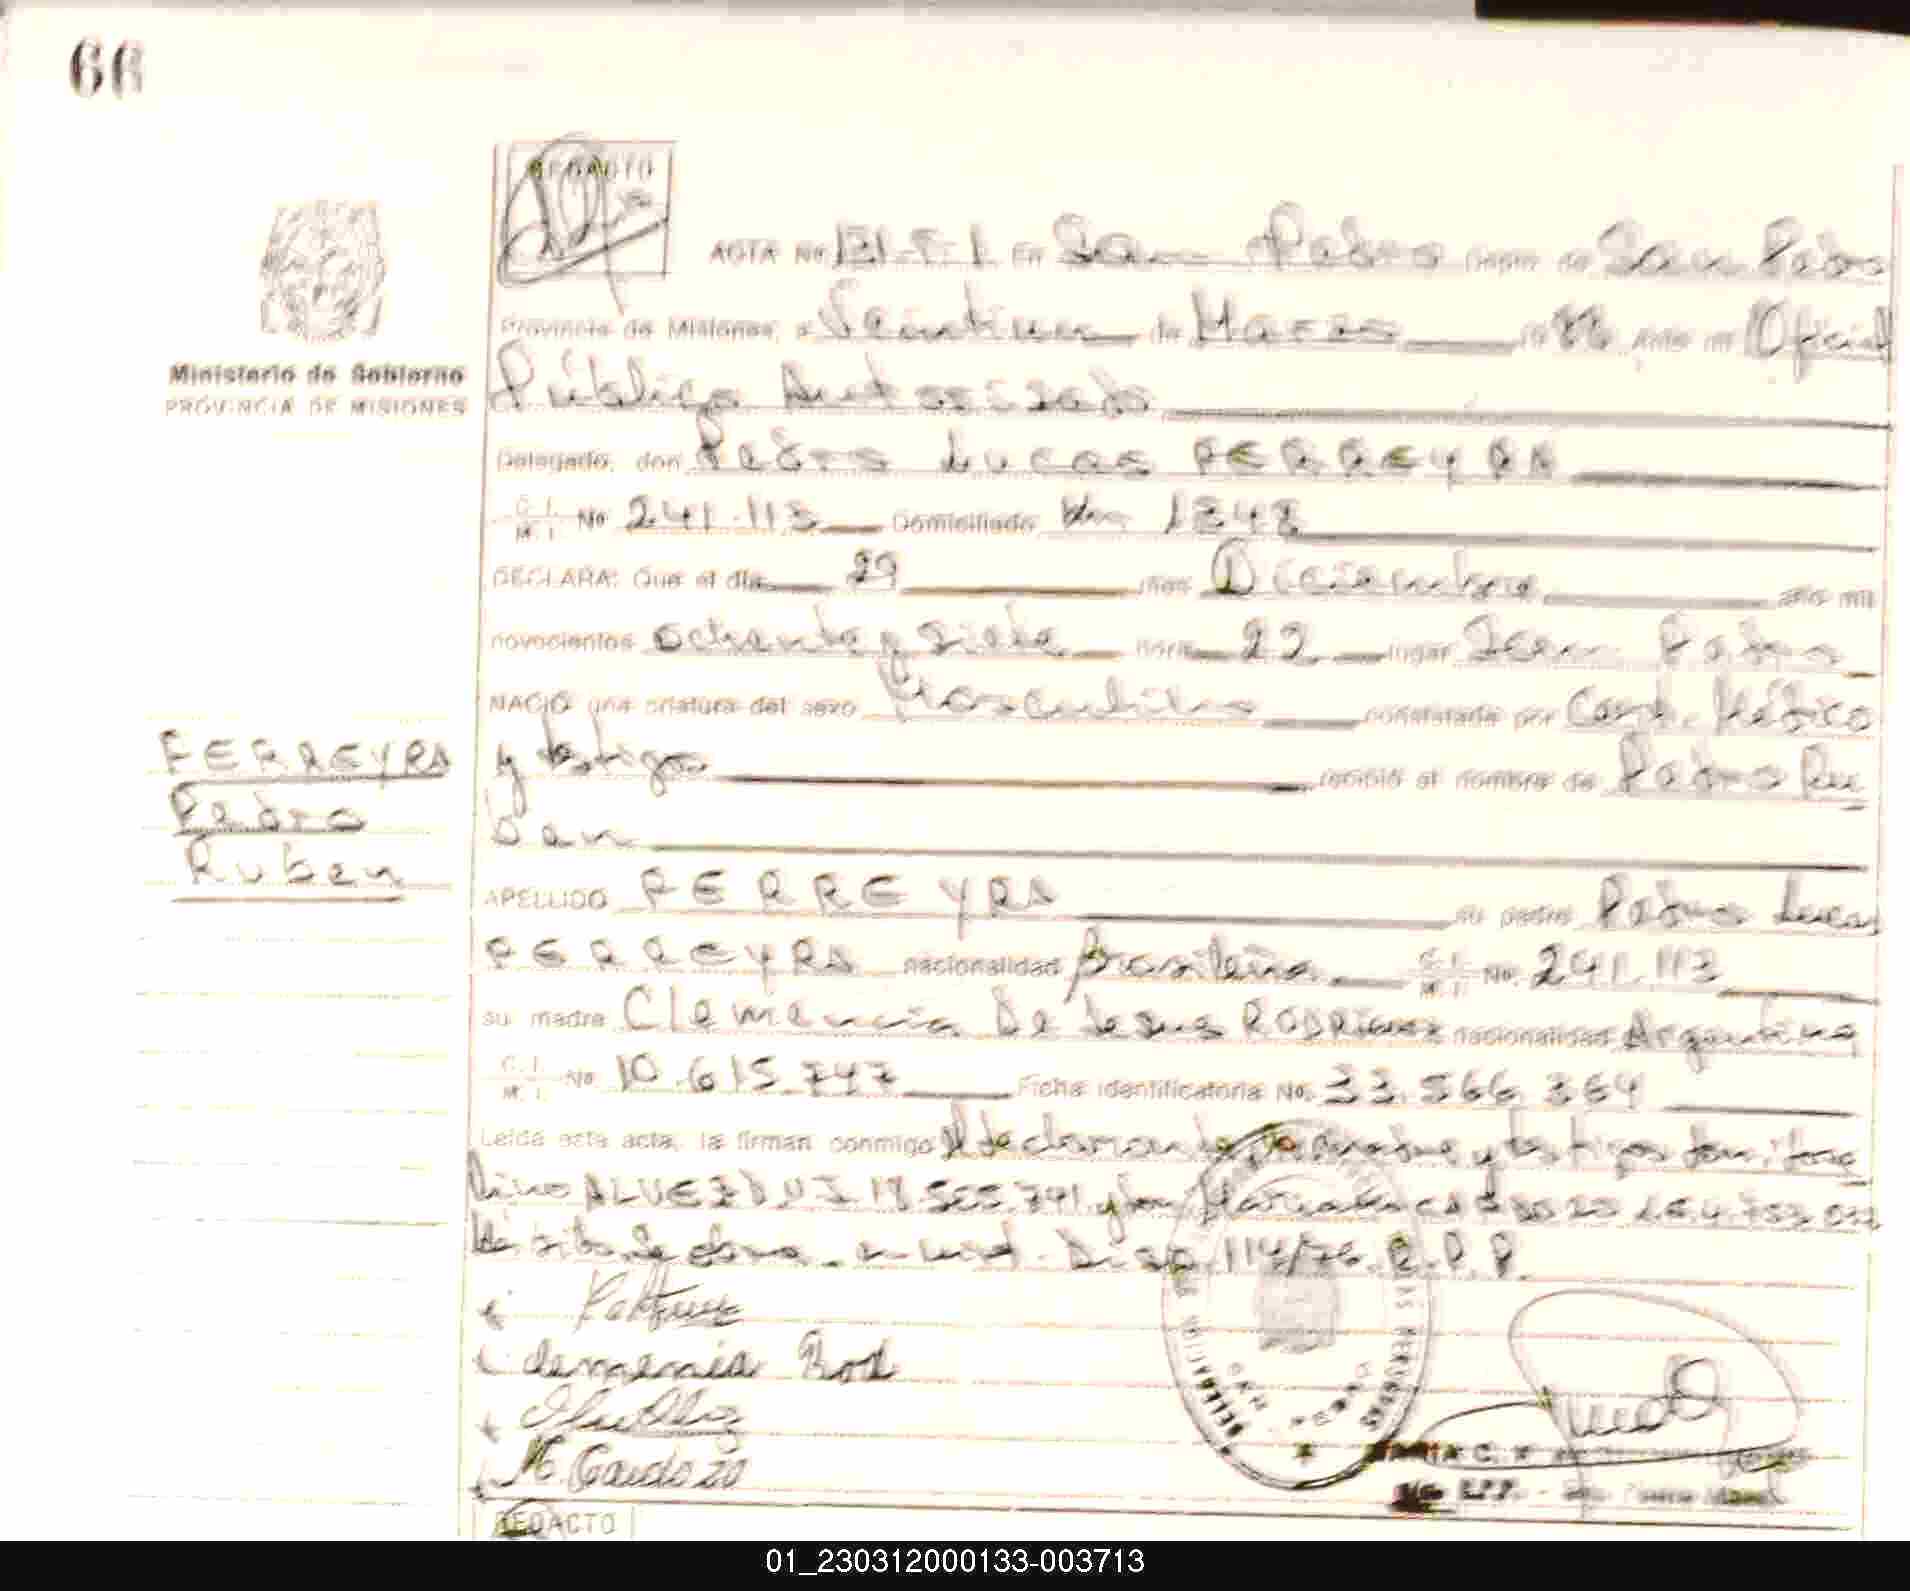 66
REDACTO
ACTA No 131-T-I En San Pedro Depto de San Pedro
Provincia de Misiones, a Veintiun de Marzo de 19 88 Ante mi Oficial
Ministerio de Gobierno
PROVINCIA DE MISIONES
Público Autorizado
Delegado, don Pedro Lucas FERREYRA
C. I. M. I. No 241.113 Domiciliado Km 1242
DECLARA: Que el día 29 mes Diciembre año mil
novecientos ochenta y siete hora 22 lugar San Pedro
NACIO una criatura del sexo Masculino constatada por Cert. Médico
y testigos recibió el nombre de Pedro Ru
ben
FERREYRA
Pedro
Ruben
APELLIDO FERREYRA su padre Pedro Lucas
FERREYRA nacionalidad Brasileña C. I. M. I. No. 241.113
su madre Clemencia De Jesus RODRIGUEZ nacionalidad Argentina
C. I. M. I. No 10.615.747 Ficha identificatoria No. 33.566.364
Leída esta acta, la firman conmigo el declarante, la madre y testigos don
y don
Disp. 114/76. R.P.P.
Clemencia Rod
M. Cardozo
MARIA C.
REDACTO
01_230312000133-003713